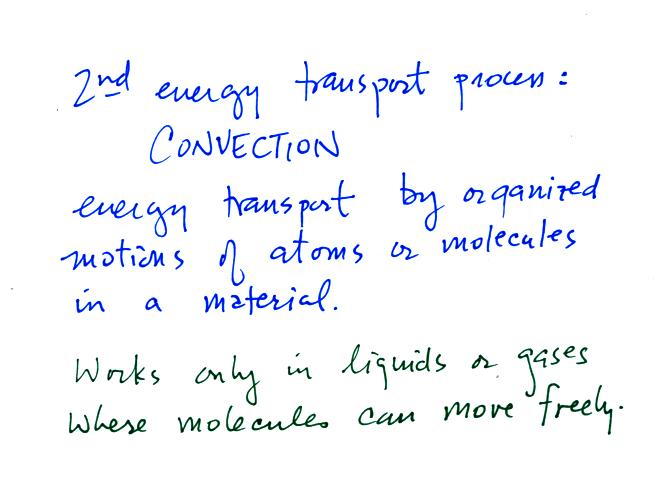 2nd energy transport process:
CONVECTION
energy transport by organized
motions of atoms or molecules
in a material.
Works only in liquids or gases
where molecules can move freely.